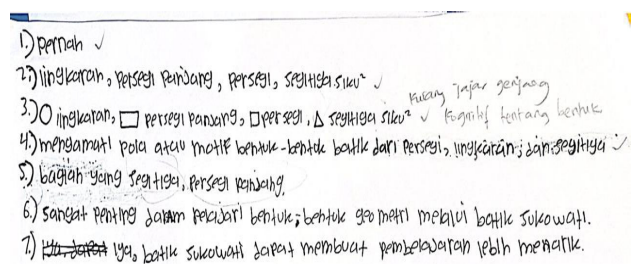 1.) pernah ✓
2.) lingkaran, persegi panjang, persegi, segitiga siku² ✓
3.) ○ lingkaran, ▭ persegi panjang, □ persegi, △ segitiga siku² ✓ kurang jajar genjang
kognitif tentang bentuk
4.) mengamati pola atau motif bentuk-bentuk batik dari persegi, lingkaran, dan segitiga
5.) bagian yang segitiga, persegi panjang.
6.) sangat penting dalam pelajari bentuk-bentuk geometri melalui batik sukowati.
7.) iya, batik sukowati dapat membuat pembelajaran lebih menarik.